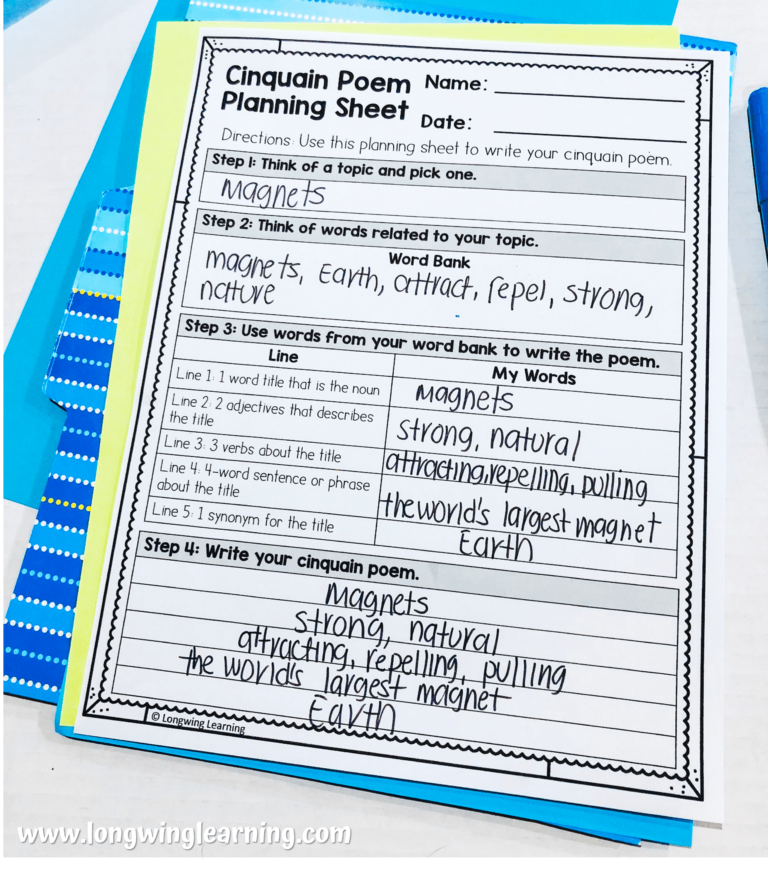 Cinquain Poem
Planning Sheet
Name:
Date:
Directions: Use this planning sheet to write your cinquain poem.
Step 1: Think of a topic and pick one.
Magnets
Step 2: Think of words related to your topic.
Word Bank
magnets, Earth, attract, repel, strong,
nature
Step 3: Use words from your word bank to write the poem.
Line
My Words
Line 1: 1 word title that is the noun
Magnets
Line 2: 2 adjectives that describes
the title
strong, natural
Line 3: 3 verbs about the title
attracting, repelling, pulling
Line 4: 4-word sentence or phrase
about the title
the world's largest magnet
Line 5: 1 synonym for the title
Earth
Step 4: Write your cinquain poem.
Magnets
strong, natural
attracting, repelling, pulling
the world's largest magnet
Earth
© Longwing Learning
www.longwinglearning.com